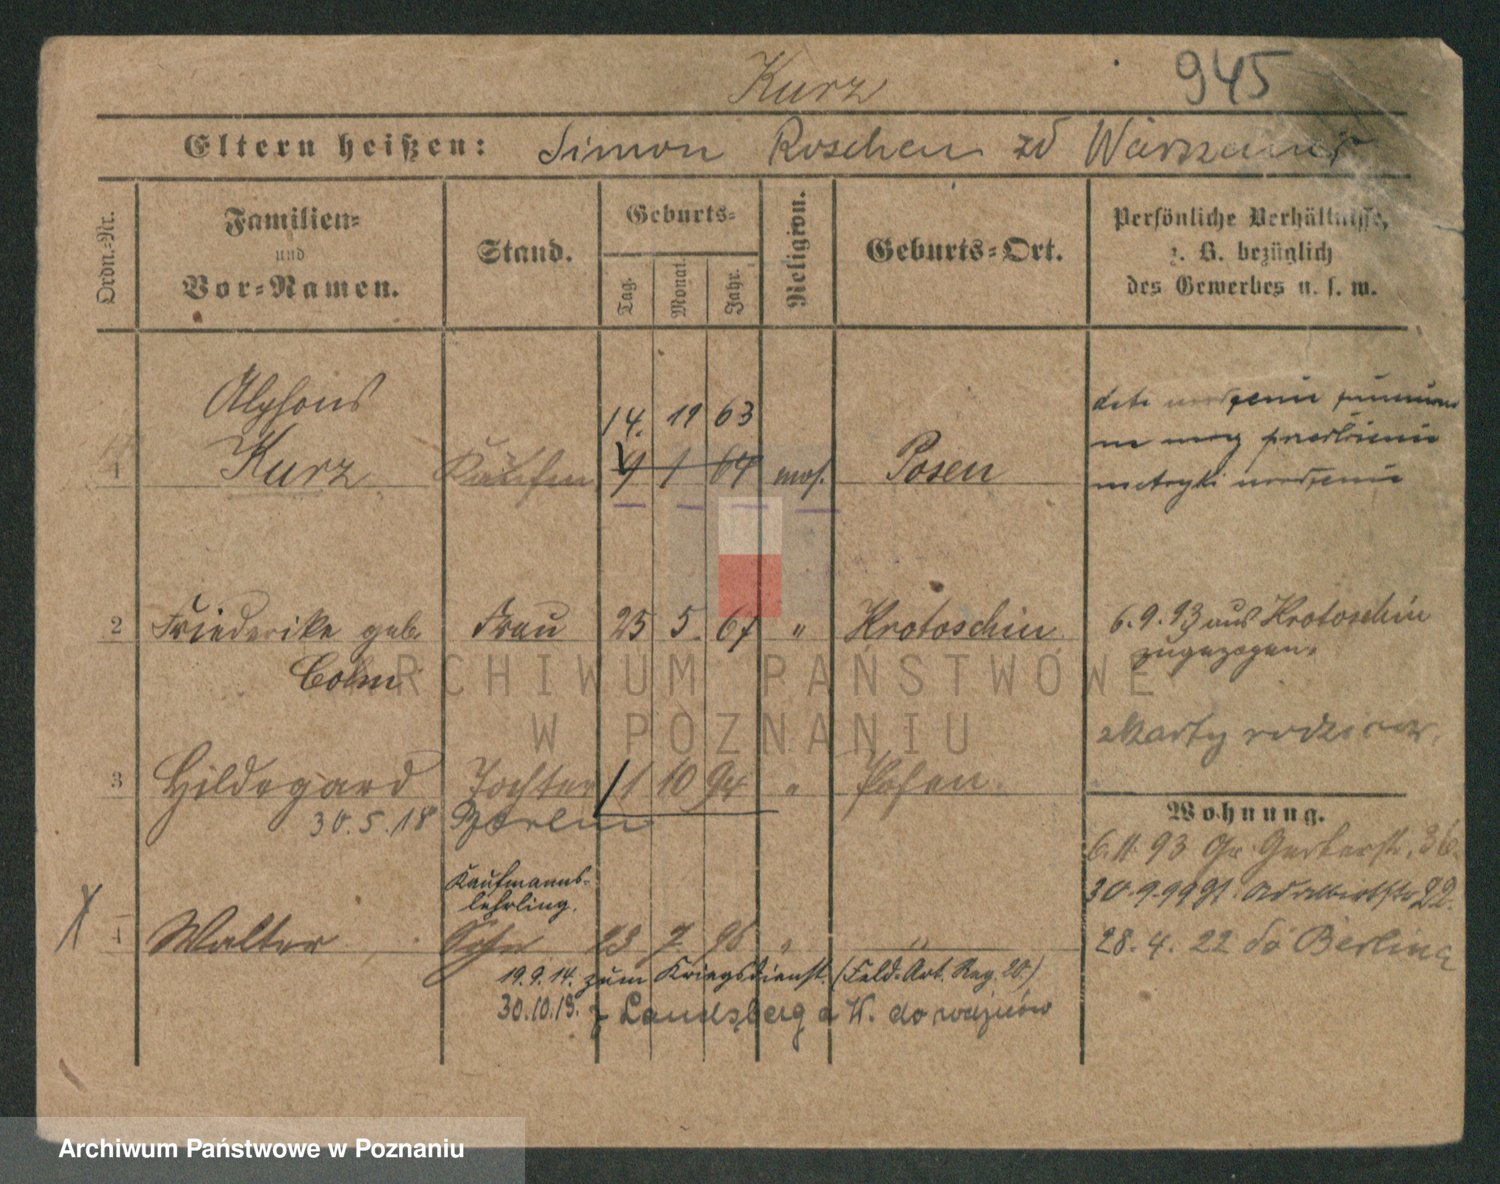 Kurz 945
Eltern heißen: Simon Roschen zd Warszauer
Ordn.-Nr.
Familien-
und
Vor-Namen.
Stand.
Geburts-
Tag.
Monat.
Jahr.
Religion.
Geburts-Ort.
Persönliche Verhältnisse,
z. B. bezüglich
des Gewerbes u. s. w.
Alphons
14. 11 63
1 Kurz Kaufm 9 1 64 mos. Posen
metryki urodzenia
2 Friederike geb. Frau 25 5. 67 " Krotoschin
Cohn
6.9.93 aus Krotoschin
zugezogen.
3 Hildegard Tochter 1 10 94 " Posen.
30.5.18 Berlin
Wohnung.
6.11 93 Gr. Gerberstr. 36.
22.
28. 4. 22 do Berlina
Kaufmanns-
lehrling.
4 Walter Sohn 23 7. 96 " "
19.9.14. zum Kriegsdienst. (Feld-Art. Reg. 20.)
30.10.19. z Landsberg a W. do rodziców
ARCHIWUM PAŃSTWOWE
W POZNANIU
Archiwum Państwowe w Poznaniu